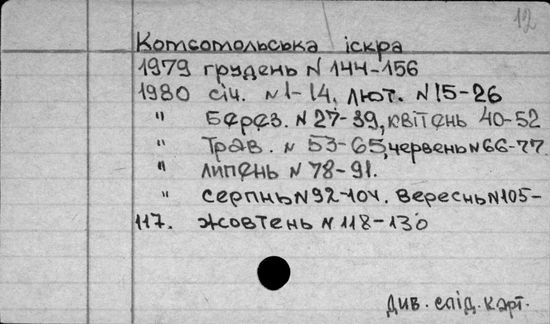 12
Комсомольська іскра
1979 грудень N 144-156
1980 січ. N 1-14, лют. N 15-26
" Берез. N 27-39, квітень 40-52
" Трав. N 53-65, червень N 66-77
" липень N 78-91.
" серпнь N 92-104. Вереснь N 105-
117. жовтень N 118-130
Див. слід. карт.